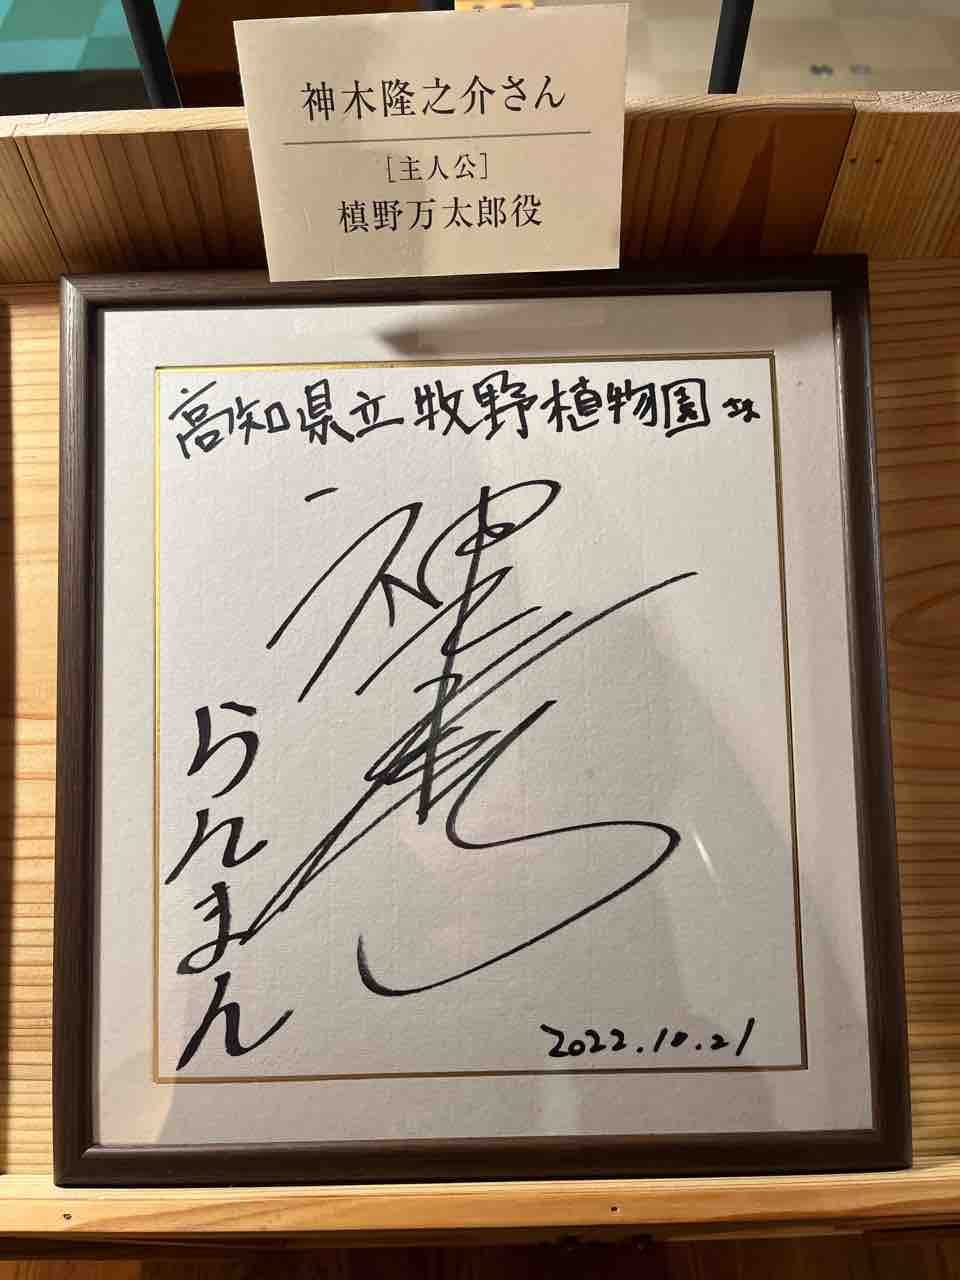 神木隆之介さん
[主人公]
槙野万太郎役
高知県立牧野植物園さま
らんまん
2022.10.21